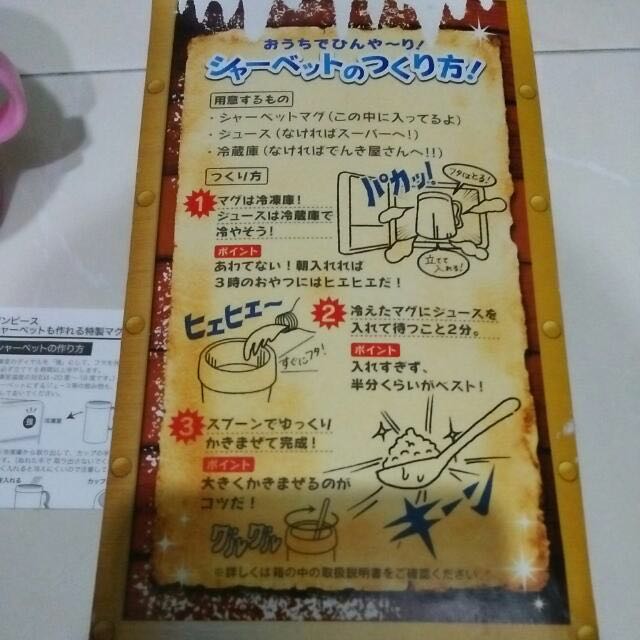 おうちでひんや〜り!
シャーベットのつくり方!
用意するもの
・シャーベットマグ(この中に入ってるよ)
・ジュース(なければスーパーへ!)
・冷蔵庫(なければでんき屋さんへ!!)
つくり方
1 マグは冷凍庫!
ジュースは冷蔵庫で
冷やそう!
ポイント
あわてない!朝入れれば
3時のおやつにはヒエヒエだ!
パカッ!
フタはとる!
立てて
入れる!
ヒエヒエ〜
すぐにフタ!
2 冷えたマグにジュースを
入れて待つこと2分。
ポイント
入れすぎず、
半分くらいがベスト!
3 スプーンでゆっくり
かきまぜて完成!
ポイント
大きくかきまぜるのが
コツだ!
グルグル
キーン
※詳しくは箱の中の取扱説明書をご確認ください
ンピース
ャーベットも作れる特製マグ
シャーベットの作り方